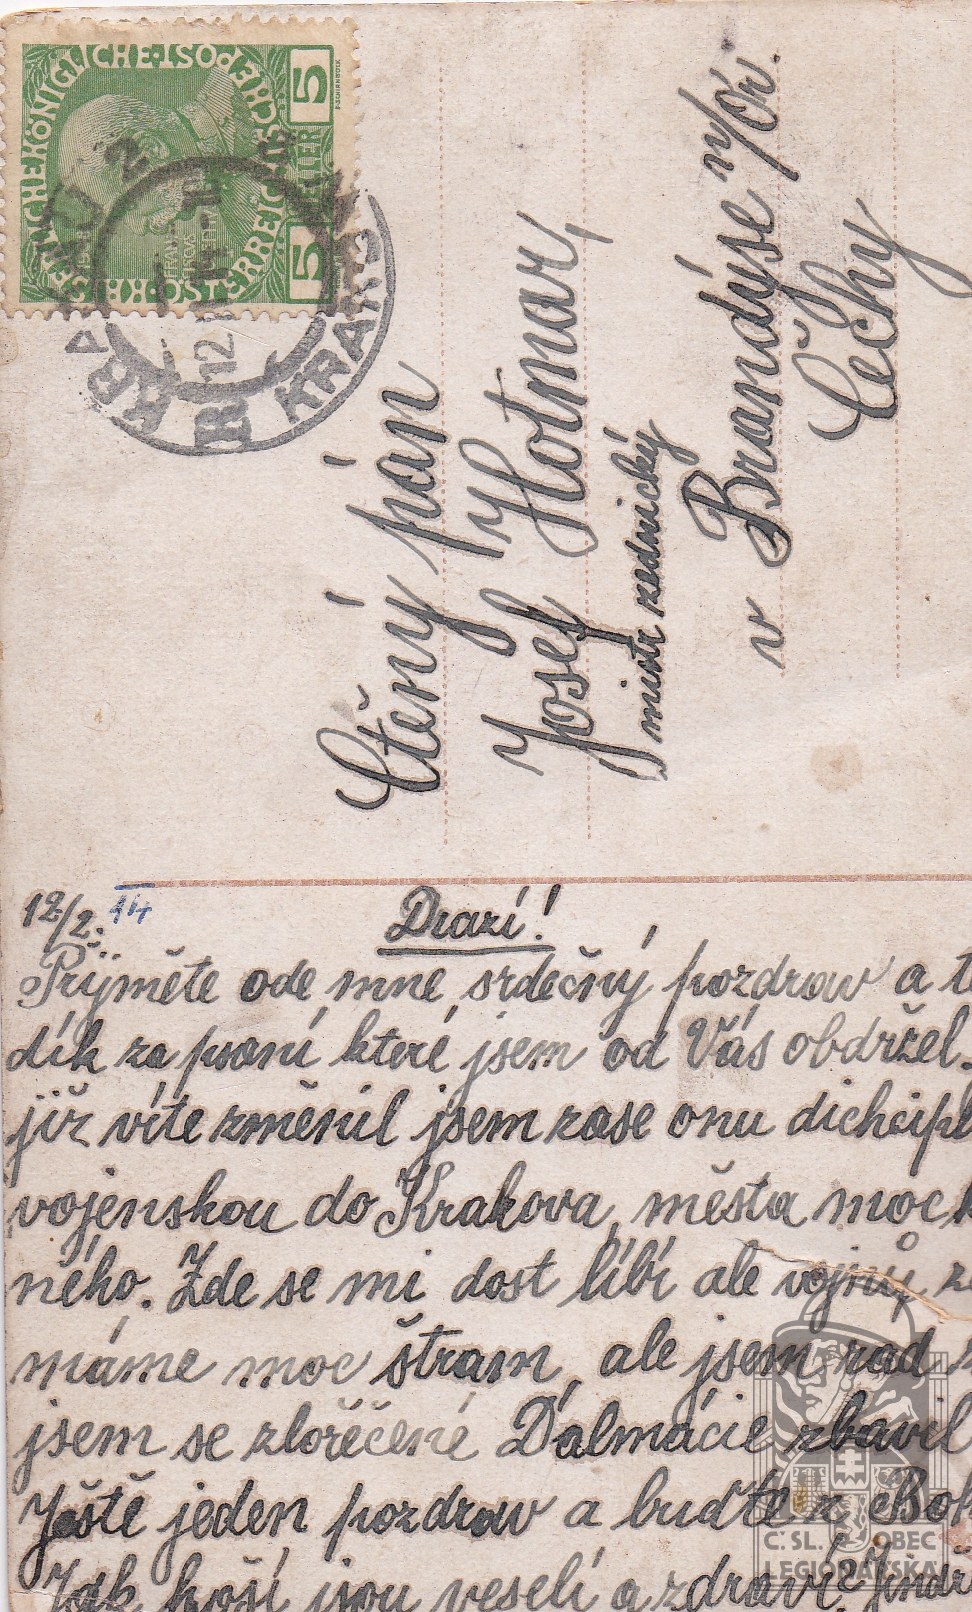 KAISERLICHE KÖNIGLICHE ÖSTERREICHISCHE POST
5 HELLER 5
KRAKAU 2
KRAKÓW
12
Ctěný pán
Josef Hotmar,
mistr zednický
v Brandýse n/Or.
Čechy
12/2. 14
Drazí!
Přijměte ode mne srdečný pozdrav a
dík za psaní které jsem od Vás obdržel.
již víte změnil jsem zase onu dichcipl
vojenskou do Krakova, města moc
ného. Zde se mi dost líbí ale vojny
máme moc štram, ale jsem rad
jsem se zlořečené Dalmácie zbavil
Jště jeden pozdrav a buďte z Boh
Jak hoši jsou veselí a zdraví? Jindř
Č. SL. OBEC
LEGIONÁŘSKÁ